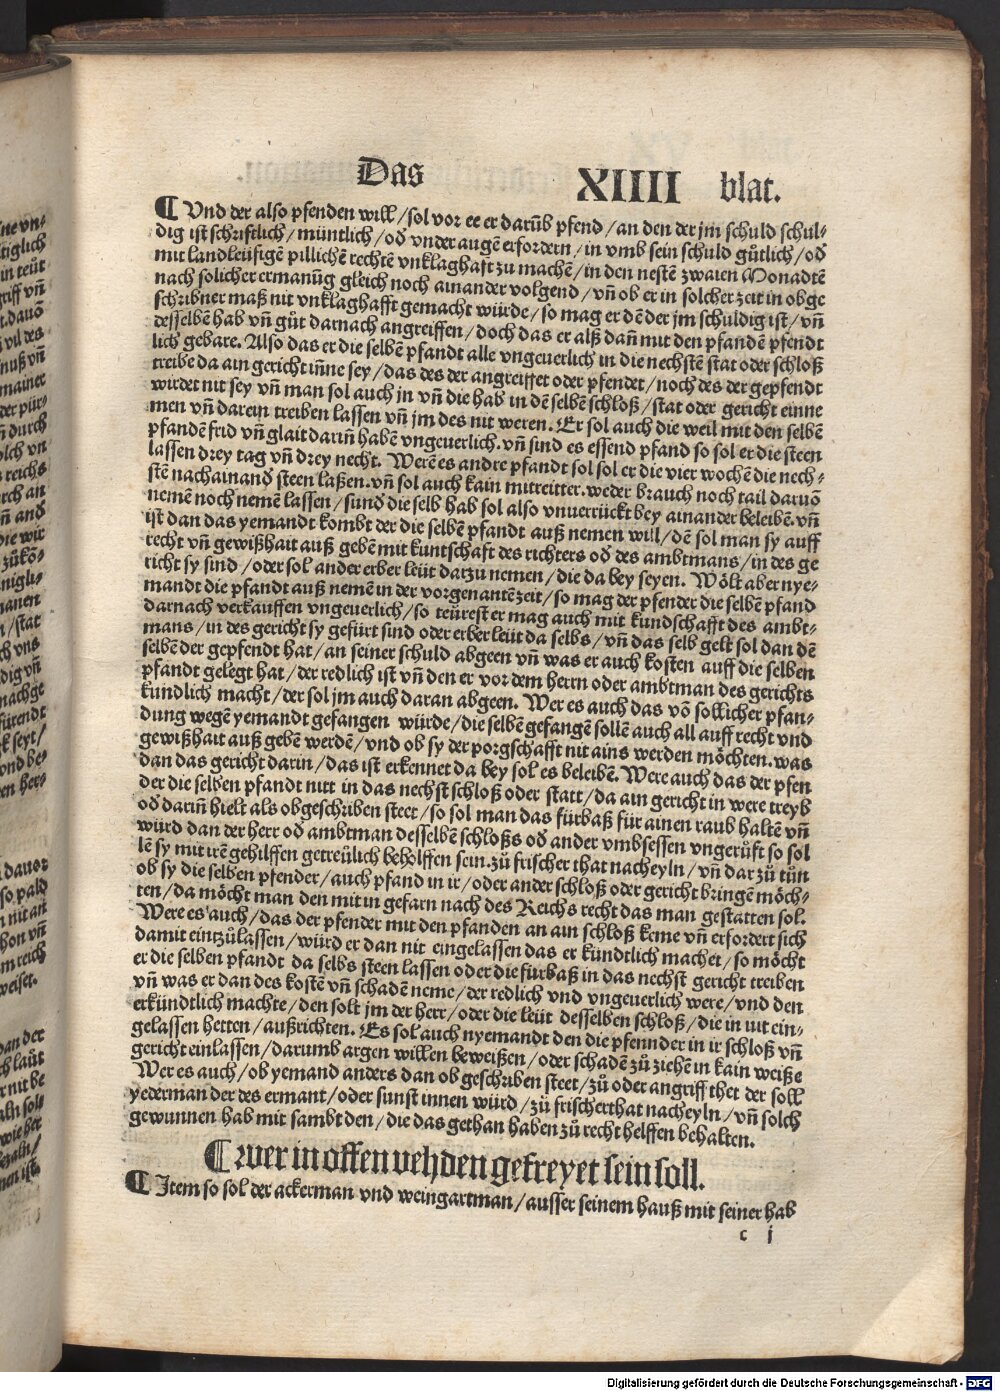 Das XIIII blat.
¶ Vnd der also pfenden will/sol vor ee er darūb pfend/an den der jm schuld schul-
dig ist schriftlich/müntlich/od vnder augē erfordern/in vmb sein schuld gůtlich/od
mit landleüfigē pillichē rechtē vnklaghaft zu machē/in den nestē zwaien Monadtē
nach solicher ermanūg gleich noch ainander volgend/vn̄ ob er in solcher zeit in obge
schribner maß nit vnklaghafft gemacht würde/so mag er dē der jm schuldig ist/vn̄
desselbē hab vn̄ gůt darnach angreiffen/doch das er alß dan̄ mit den pfandē pfendt
lich gebare. Also das er die selbē pfandt alle vngeuerlich in die nechstē stat oder schloß
treibe da ain gericht in̄ne sey/das des der angreiffet oder pfendet/noch des der gepfendt
wirdet nit sey vn̄ man sol auch jn vn̄ die hab in dē selbē schloß/stat oder gericht einne
men vn̄ darein treiben lassen vn̄ jm des nit weren. Er sol auch die weil mit den selbē
pfandē frid vn̄ glait darin̄ habē vngeuerlich. vn̄ sind es essend pfand so sol er die steen
lassen drey tag vn̄ drey necht. Werē es andre pfandt sol sol er die vier wochē die nech-
stē nachainand steen laßen. vn̄ sol auch kain mitreitter. weder brauch noch tail daruō
nemē noch nemē lassen/sund die selb hab sol also vnuerrückt bey ainander beleibē. vn̄
ist dan das yemandt kombt der die selbē pfandt auß nemen will/dē sol man sy auff
recht vn̄ gewißhait auß gebē mit kuntschaft des richters od des ambtmans/in des ge
richt sy sind/oder sol ander erber leüt darzu nemen/die da bey seyen. Wölt aber nye-
mandt die pfandt auß nemē in der vorgenantē zeit/so mag der pfender die selbē pfand
darnach verkauffen vngeuerlich/so teürest er mag auch mit kundschafft des ambt-
mans/in des gericht sy gefürt sind oder erber leüt da selbs/vn̄ das selb gelt sol dan dē
selbē der gepfendt hat/an seiner schuld abgeen vn̄ was er auch kosten auff die selben
pfandt gelegt hat/der redlich ist vn̄ den er vor dem herrn oder ambtman des gerichts
kundlich macht/der sol jm auch daran abgeen. Wer es auch das vō sollicher pfan-
dung wegē yemandt gefangen würde/die selbē gefangē sollē auch all auff recht vnd
gewißhait auß gebē werdē/vnd ob sy der porgschafft nit ains werden möchten. was
dan das gericht darin/das ist erkennet da bey sol es beleibē. Were auch das der pfen
der die selben pfandt nitt in das nechst schloß oder statt/da ain gericht in were treyb
od darin̄ hielt als obgeschriben steet/so sol man das fürbaß für ainen raub haltē vn̄
würd dan der herr od ambtman desselbē schloßs od ander vmbsessen vngerüft so sol
lē sy mit irē gehilffen getreülich beholffen sein. zů frischer that nacheyln/vn̄ dar zů tůn
ob sy die selben pfender/auch pfand in ir/oder ander schloß oder gericht bringē möch-
ten/da möcht man den mit in gefarn nach des Reichs recht das man gestatten sol.
Were es auch/das der pfender mit den pfanden an ain schloß keme vn̄ erfordert sich
damit eintzůlassen/würd er dan nit eingelassen das er kündtlich machet/so möcht
er die selben pfandt da selbs steen lassen oder die fürbaß in das nechst gericht treiben
vn̄ was er dan des kostē vn̄ schadē neme/der redlich vnd vngeuerlich were/vnd den
erkündtlich machte/den solt jm der herr/oder die leüt desselben schloß/die in nit ein-
gelassen hetten/außrichten. Es sol auch nyemandt den die pfennder in ir schloß vn̄
gericht einlassen/darumb argen willen beweißen/oder schadē zů ziehē in kain weiße
Wer es auch/ob yemand anders dan ob geschriben steet/zů oder angriff thet der soll
yederman der des ermant/oder sunst innen würd/zů frischerthat nacheyln/vn̄ solch
gewunnen hab mit sambt den/die das gethan haben zů recht helffen behalten.
¶ wer in offen vehden gefreyet sein soll.
¶ Item so sol der ackerman vnd weingartman/ausser seinem hauß mit seiner hab
c j
Digitalisierung gefördert durch die Deutsche Forschungsgemeinschaft - DFG